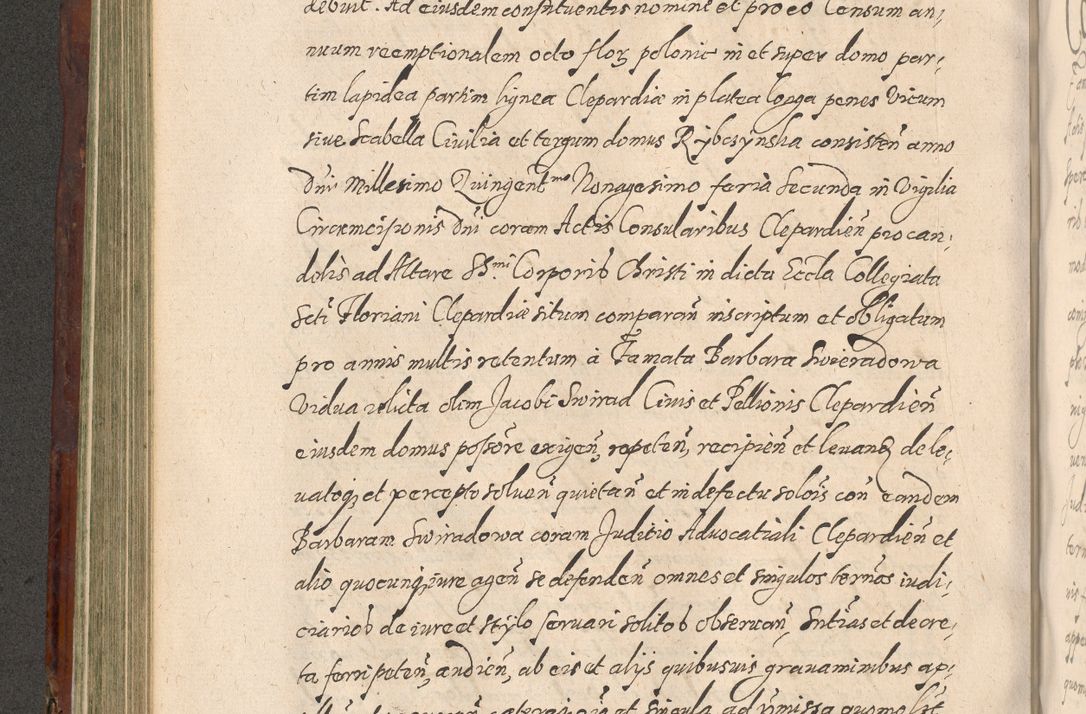 debuit. Ad eiusdem constituentis nomine et pro eo Censum an,
nuum reemptionalem octo floz polonic in et super domo par,
tim lapidea partim lignea Clepardiæ in platea longa penes Vicum
siue Scabella Ciuilia et tergum domus Rybczynska consisteñ anno
Dñi Millesimo Quingentmo Nonagesimo feria Secunda in Vigilia
Circumcisionis Dñi coram Actis Consularibus Clepardieñ pro can,
delis ad Altare SSmi Corporis Christi in dicta Eccla Collegiata
Scti Floriani Clepardiæ situm comparañ inscriptum et obligatum
pro annis multis retentum à Famata Barbara Swieradowa
Vidua relicta olim Jacobi Swirad Ciuis et Pellionis Clepardieñ
eiusdem domus possõre exigeñ, repeteñ, recipieñ et leuanď de le,
uatoq, et percepto solueñ quietañ et in defectu solõis coñ eandem
Barbaram Swiradowa coram Juditio Aduocatiali Clepardieñ et
alio quocunq, iure ageñ se defendeñ omnes et singulos termãs iudi,
ciarios de iure et stylo seruari solitos obseruañ, Sntias et decre,
ta ferri peteñ, audieñ, ab eis et alijs quibusuis grauaminibus ap,
et singula ad præmissa quomolět